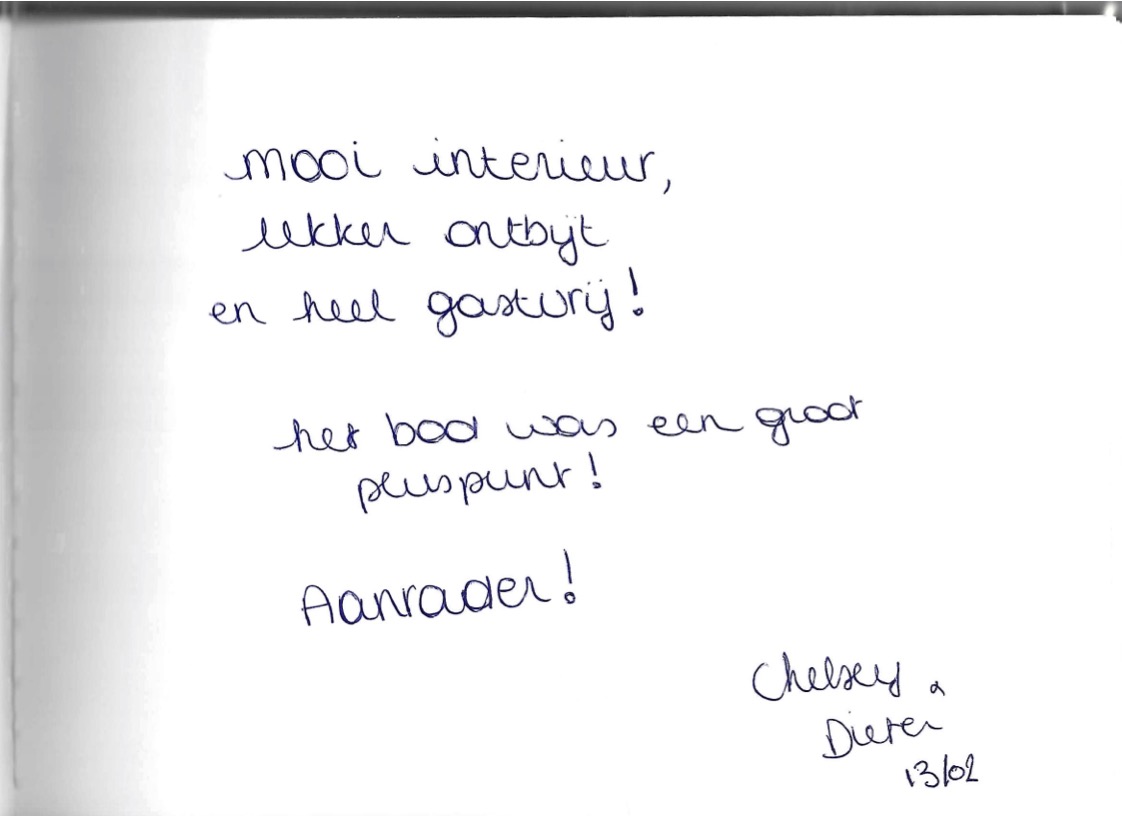 mooi interieur,
lekker ontbijt
en heel gastvrij!
het bad was een groot
pluspunt!
Aanrader!
Chelsey &
Dieter
13/02